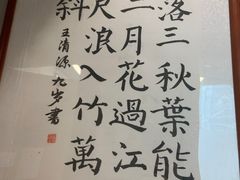 落三秋葉能
二月花過江
尺浪入竹萬
斜
王清源 九岁書